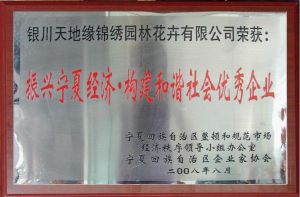 银川天地缘锦绣园林花卉有限公司荣获：
振兴宁夏经济·构建和谐社会优秀企业
宁夏回族自治区整顿和规范市场
经济秩序领导小组办公室
宁夏回族自治区企业家协会
二00八年八月